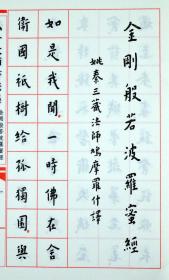 金剛般若波羅蜜經
姚秦三藏法師鳩摩羅什譯
如是我聞一時佛在舍
衛國祇樹給孤獨園與